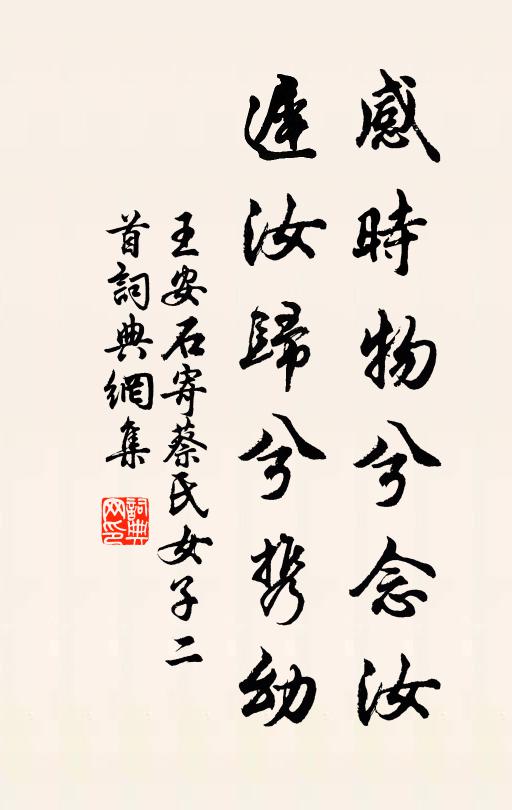 感時物兮念汝
遲汝歸兮携幼
王安石寄蔡氏女子二
首詞典網集
詞典網印